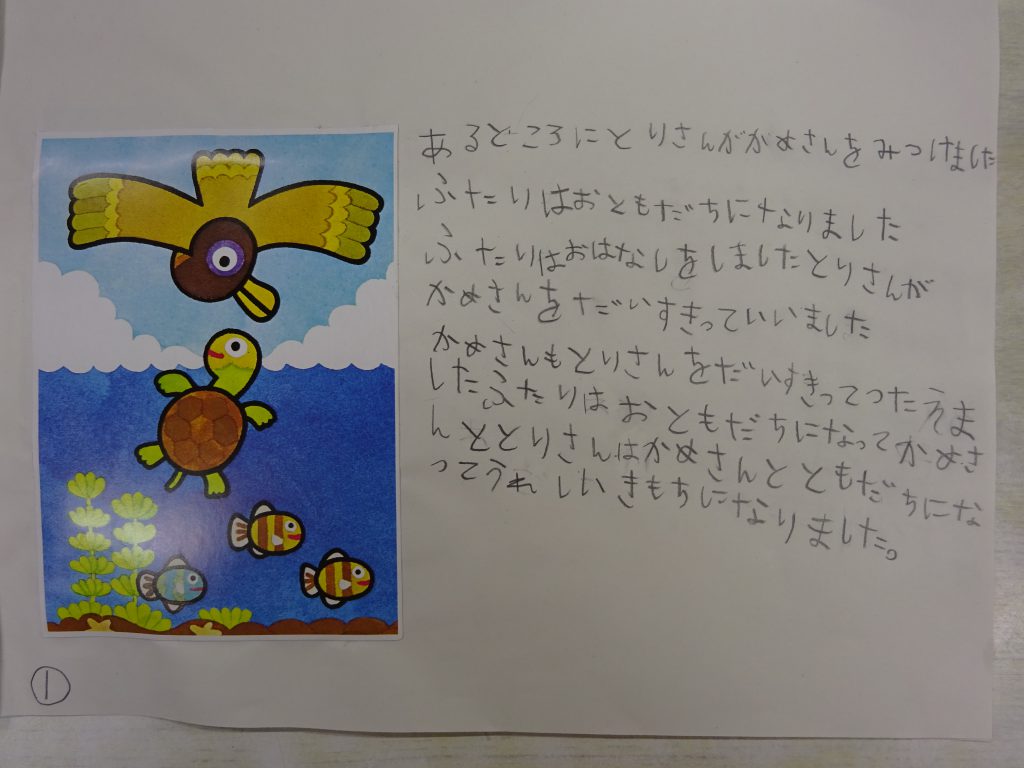 あるところにとりさんがかめさんをみつけました
ふたりはおともだちになりました
ふたりはおはなしをしましたとりさんが
かめさんをだいすきっていいました
かめさんもとりさんをだいすきってつたえま
したふたりはおともだちになってかめさ
んととりさんはかめさんとともだちにな
ってうれしいきもちになりました。
①